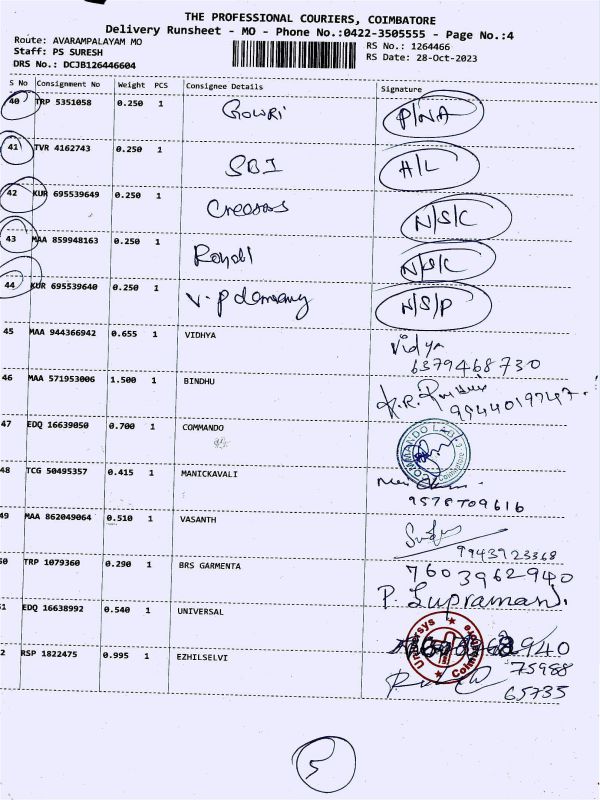 THE PROFESSIONAL COURIERS, COIMBATORE
Delivery Runsheet - MO - Phone No.:0422-3505555 - Page No.:4
Route: AVARAMPALAYAM MO
RS No.: 1264466
Staff: PS SURESH
RS Date: 28-Oct-2023
DRS No.: DCJB126446604
S No Consignment No Weight PCS Consignee Details Signature
40 TRP 5351058 0.250 1 Gowri P/NA
41 TVR 4162743 0.250 1 SBI H/L
42 KUR 695539649 0.250 1 N/S/C
43 MAA 859948163 0.250 1 N/S/C
44 KUR 695539640 0.250 1 N/S/P
45 MAA 944366942 0.655 1 VIDHYA Vidya
6379468730
46 MAA 571953006 1.500 1 BINDHU
47 EDQ 16639050 0.700 1 COMMANDO
48 TCG 50495357 0.415 1 MANICKAVALI
9578709616
49 MAA 862049064 0.510 1 VASANTH
9943923368
50 TRP 1079360 0.290 1 BRS GARMENTA 7603962940
51 EDQ 16638992 0.540 1 UNIVERSAL
52 RSP 1822475 0.995 1 EZHILSELVI 75988
65735
5